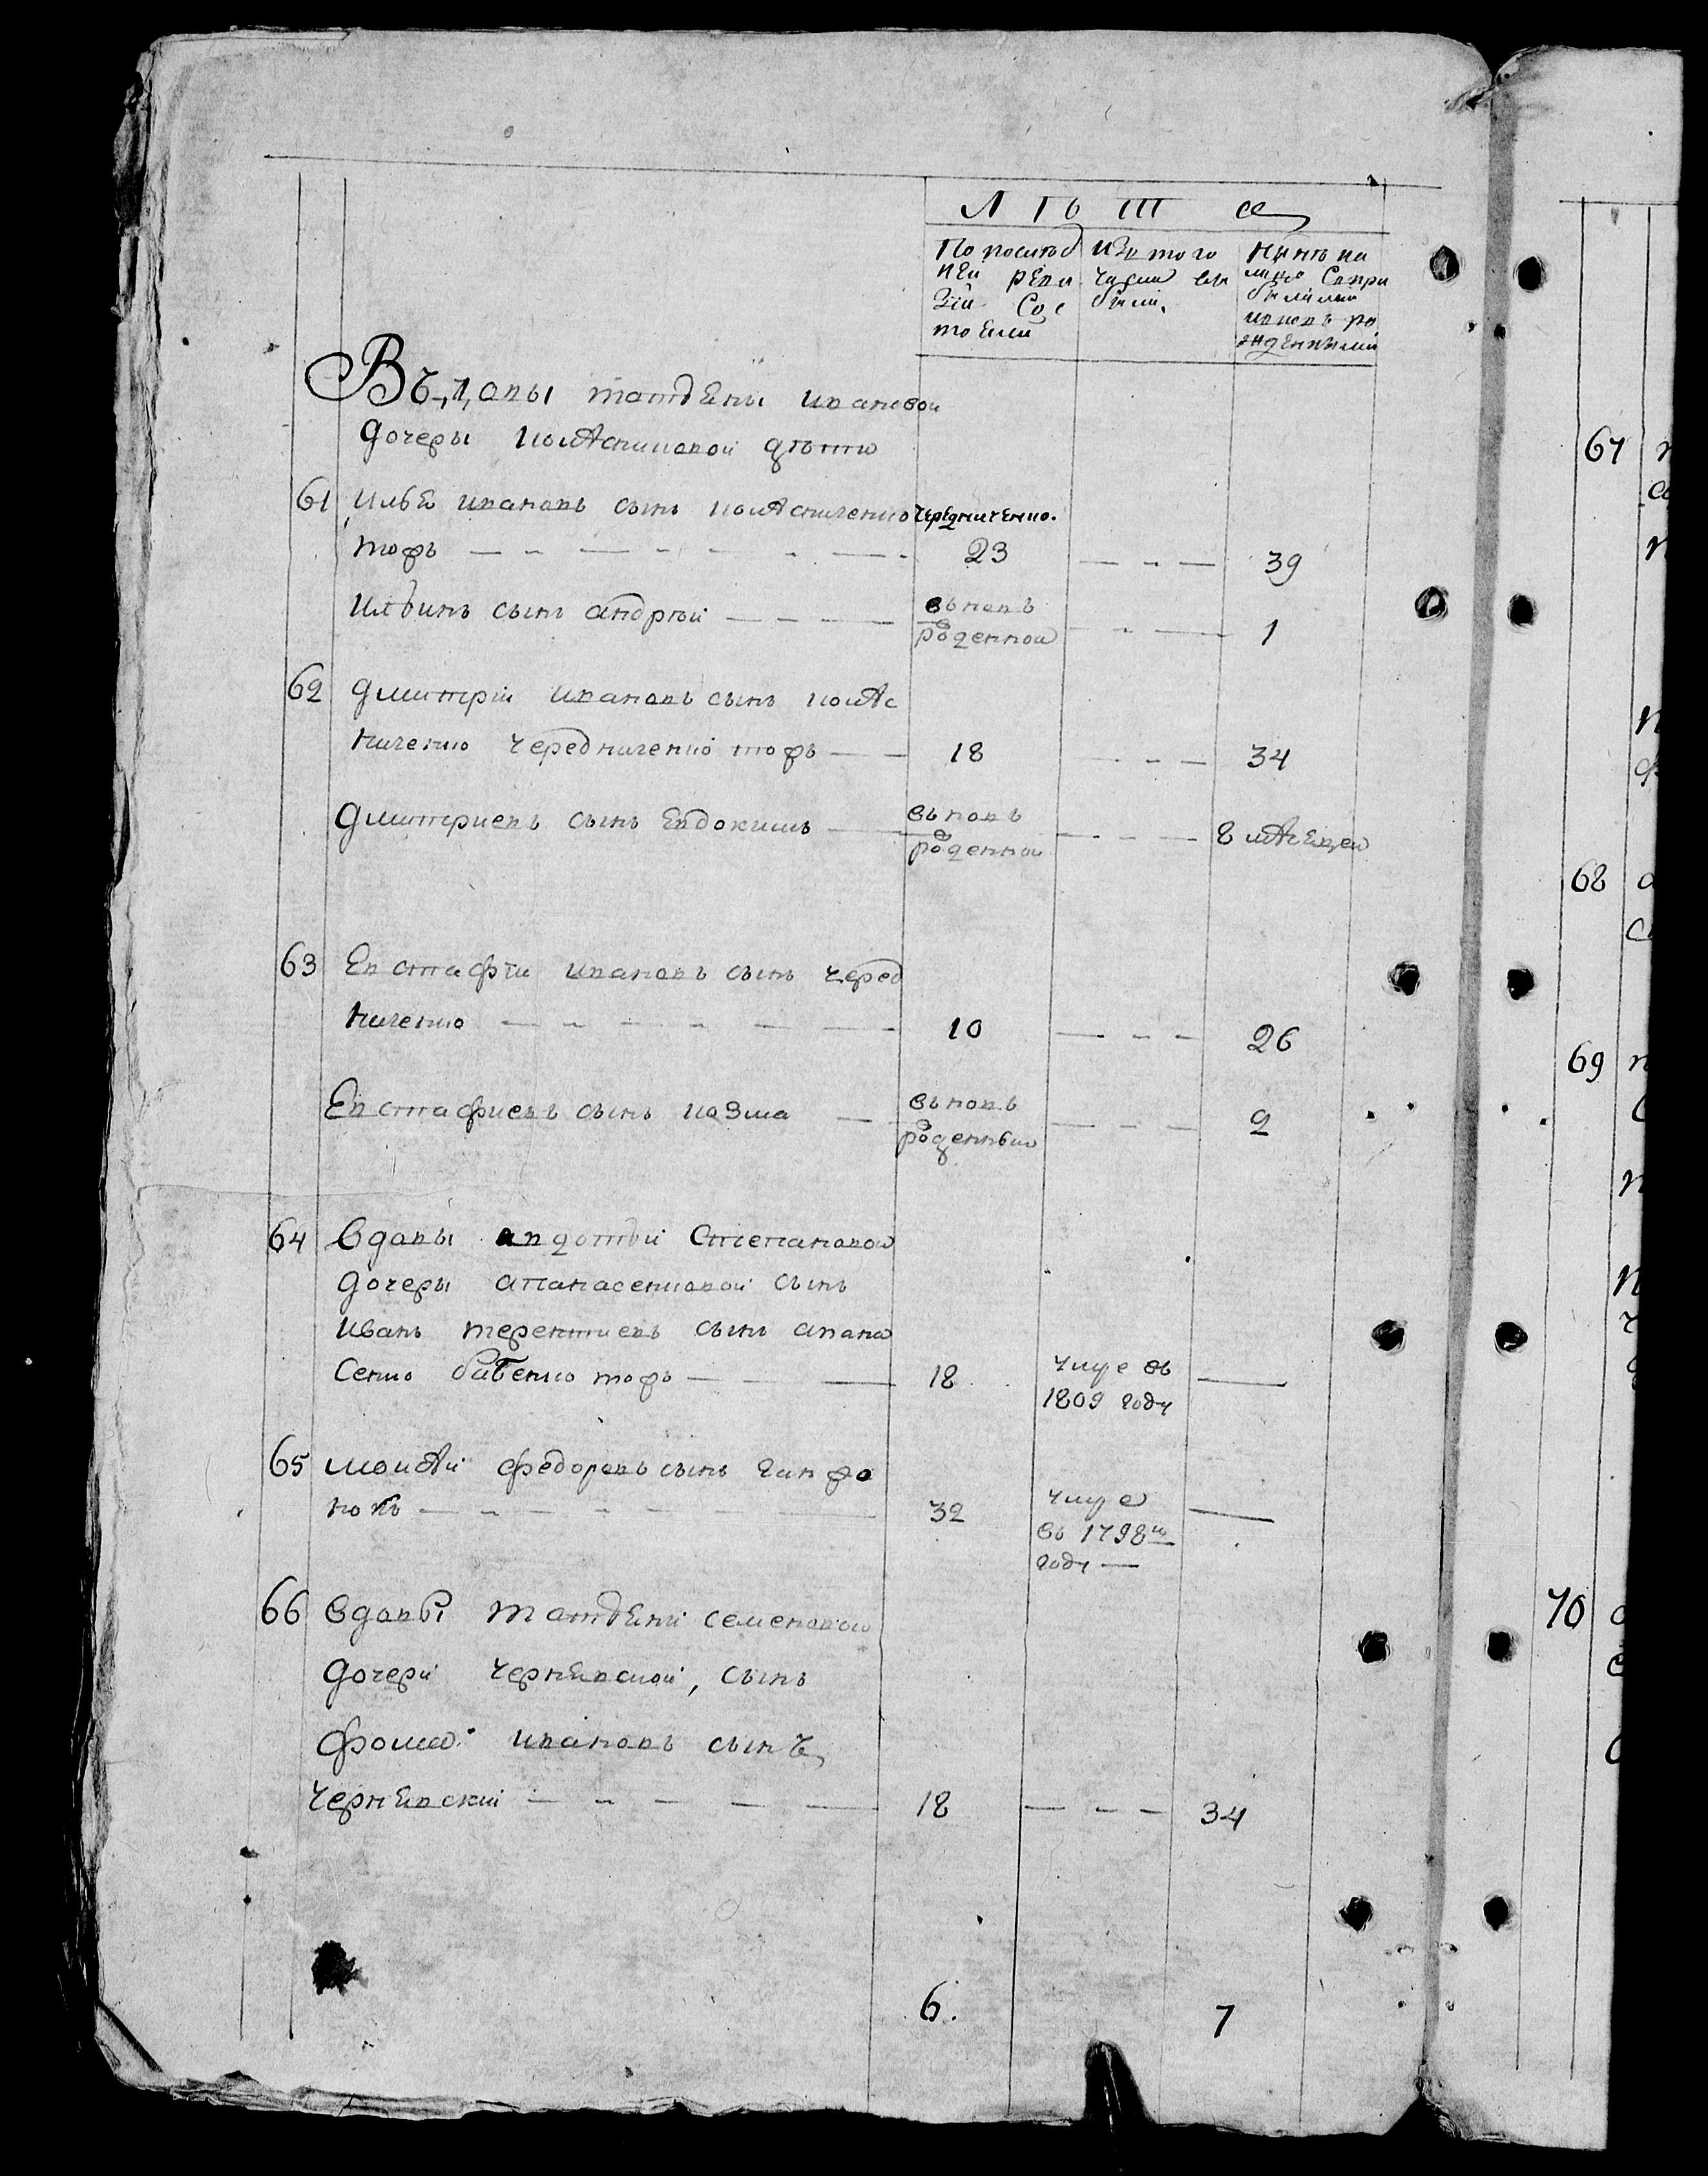 Л Ѣ Т а
По послѣд
ней реви
зiи Сос
тояли
Изъ того
числа вы
были.
Нынѣ на
лицо Съпри
былыми
иновъ ро
жденными
Въдовы татьѣны ивановой
дочеры колѣсниковой дѣти
61 Илья ивановъ сынъ колѣсниченко Чередниченко.
тожъ 23 39
Ильинъ сынъ андрѣй въновь
рожденной 1
62 Дмитрiй ивановъ сынъ колѣс
ниченко Чередниченко тожъ 18 34
Дмитриевъ сынъ Евдокимъ въновь
рожденной 8 мѣсецей
63 Евстафiй ивановъ сынъ черед
ниченко 10 26
Евстафиевъ сынъ козма въновь
рожденный 2
64 Вдовы авдотьи Степановой
дочеры апанасенковой сынъ
Иванъ терентиевъ сынъ апана
сенко бабенко тожъ 18
1809 году
65 моисѣй федоровъ сынъ
32
въ 1798м
году
66 Вдовы татьѣни семеновой
дочери Чернѣвской, сынъ
Фома ивановъ сынъ,
Чернѣвскiй 18 34
6. 7
67
68
69
70